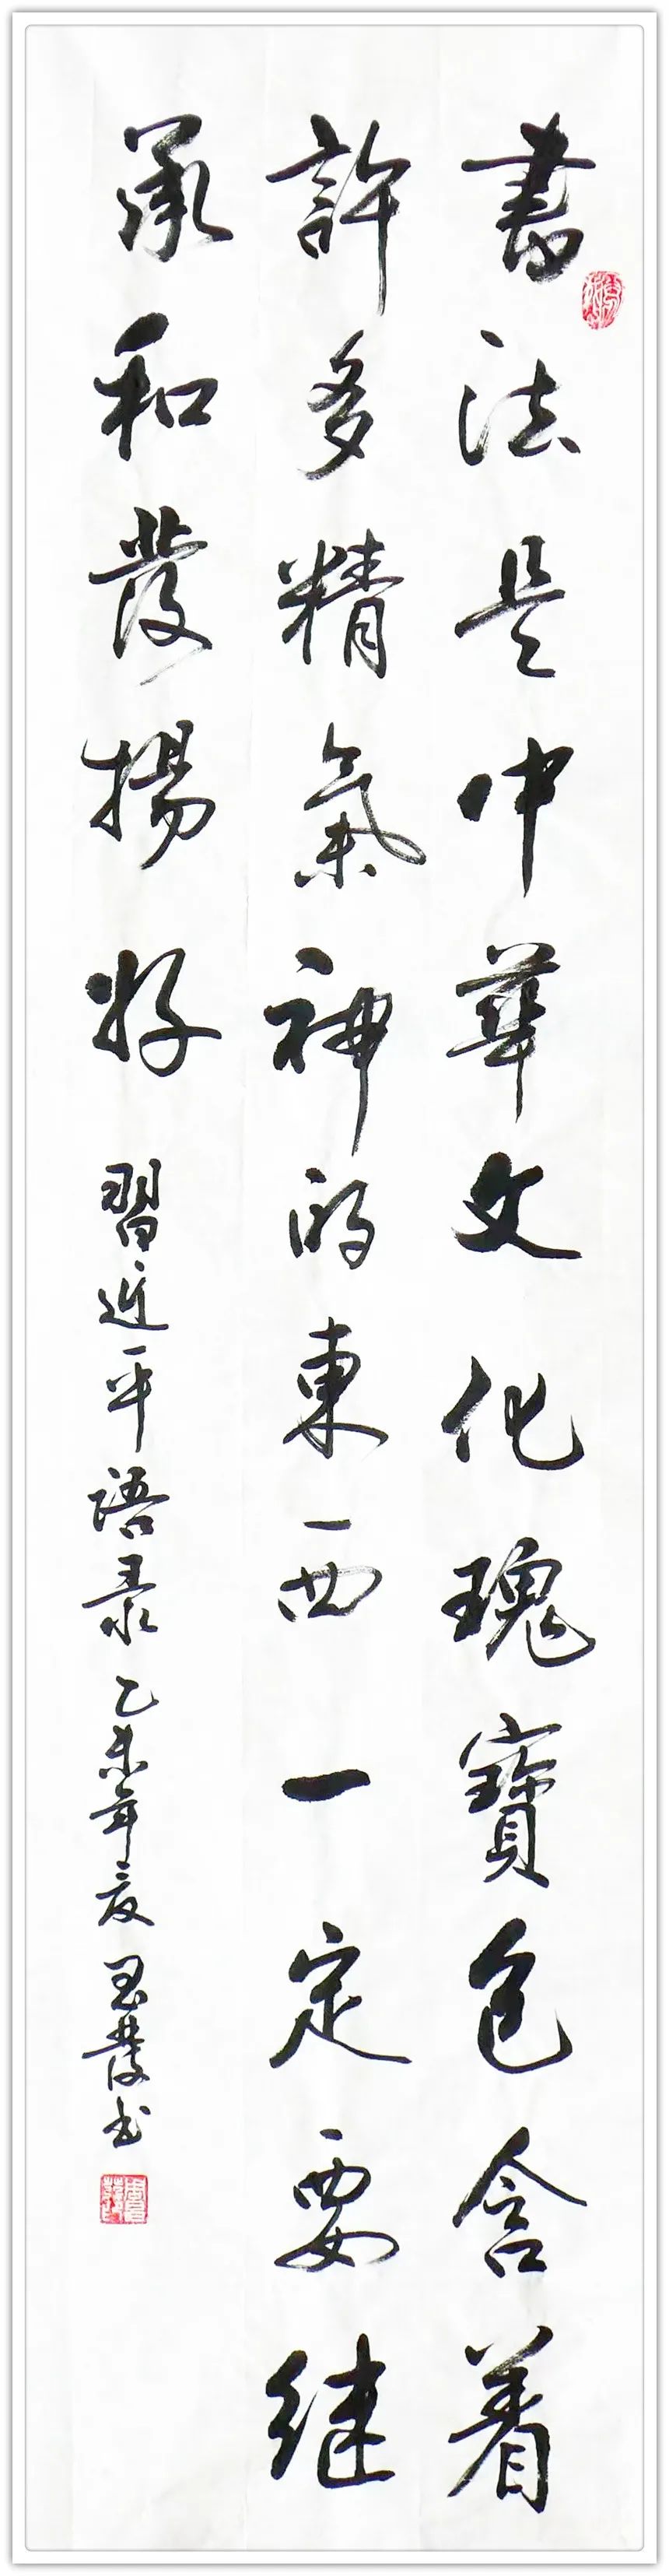 書法是中華文化瑰寶包含着
許多精氣神的東西一定要继
承和發揚好 習近平語录 乙未年夏 發书